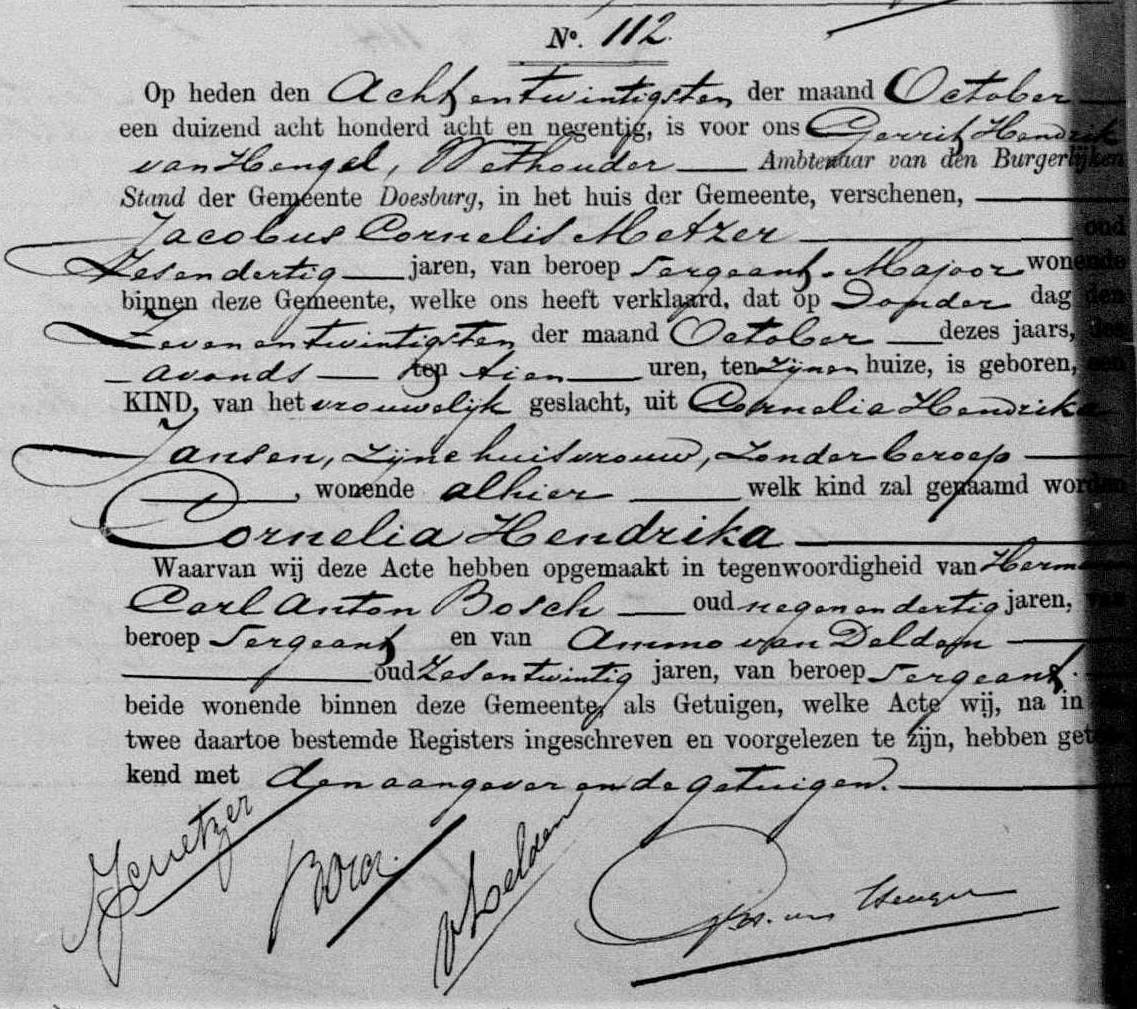 No. 112.
Op heden den Achtentwintigsten der maand October
een duizend acht honderd acht en negentig, is voor ons Gerrit Hendrik
van Hengel, Wethouder Ambtenaar van den Burgerlijken
Stand der Gemeente Doesburg, in het huis der Gemeente, verschenen,
Jacobus Cornelis Metzer oud
Zesendertig jaren, van beroep Sergeant-Majoor wonende
binnen deze Gemeente, welke ons heeft verklaard, dat op Donder dag den
Zevenentwintigsten der maand October dezes jaars, des
avonds ten tien uren, ten zijnen huize, is geboren, een
KIND, van het vrouwelijk geslacht, uit Cornelia Hendrika
Jansen, zijne huisvrouw, zonder beroep
, wonende alhier welk kind zal genaamd worden
Cornelia Hendrika
Waarvan wij deze Acte hebben opgemaakt in tegenwoordigheid van Herman
Carl Anton Bosch oud negenendertig jaren, van
beroep Sergeant en van Ammo van Delden
oud Zesentwintig jaren, van beroep Sergeant.
beide wonende binnen deze Gemeente, als Getuigen, welke Acte wij, na in
twee daartoe bestemde Registers ingeschreven en voorgelezen te zijn, hebben getee-
kend met den aangever en de getuigen.
JCMetzer Bosch. vDelden GH. van Hengel